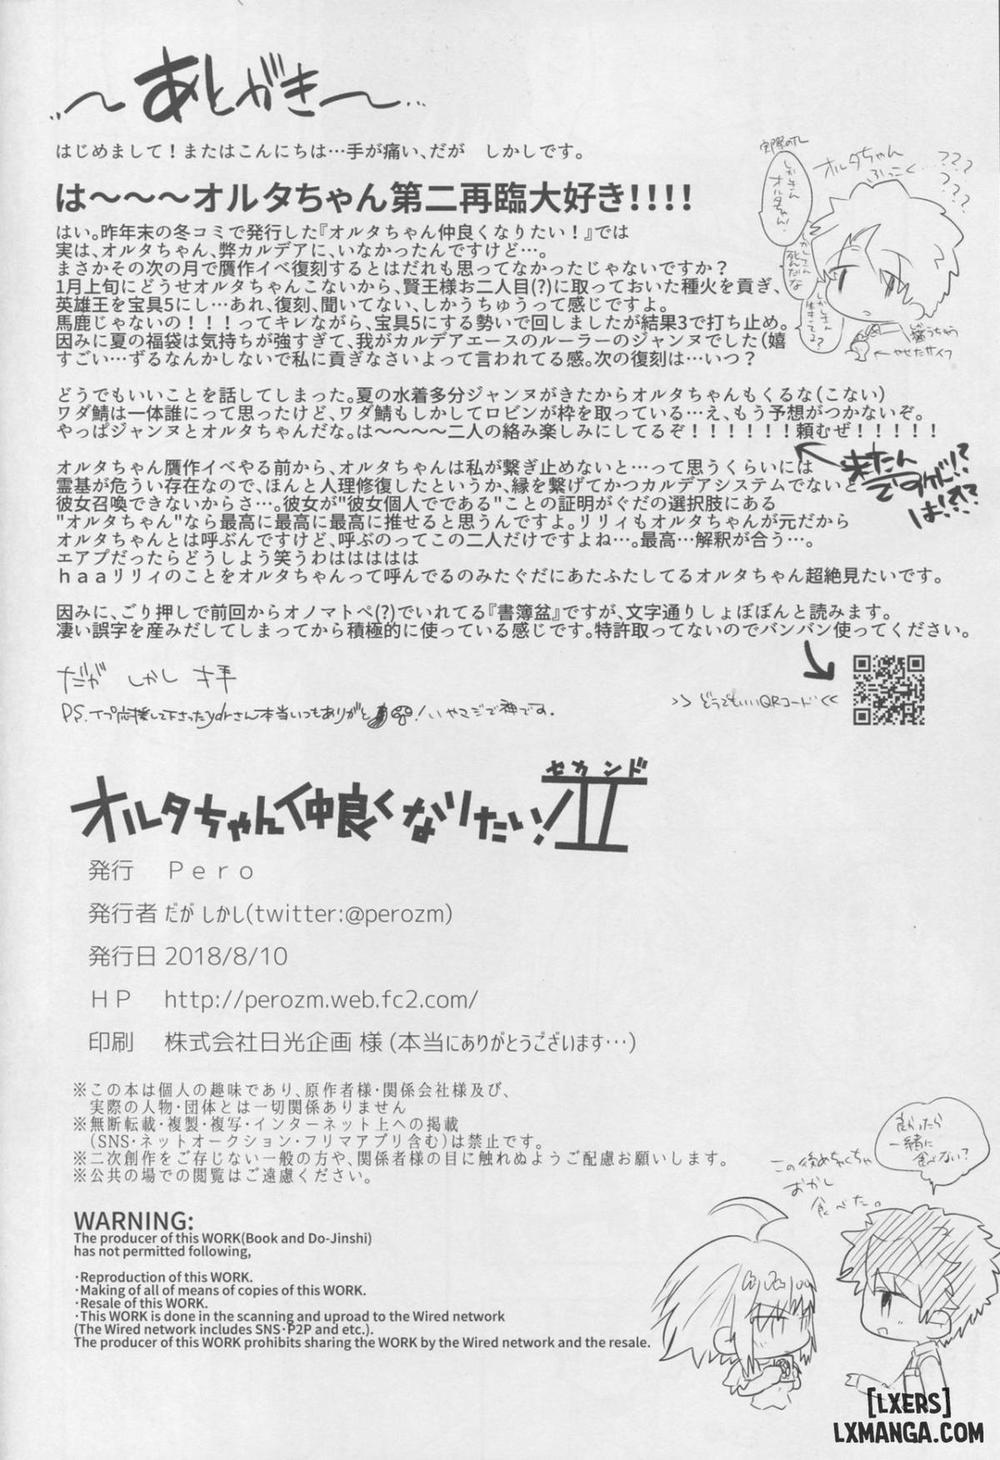 ～あとがき～
はじめまして！またはこんにちは…手が痛い、だが　しかしです。
は～～～オルタちゃん第二再臨大好き！！！！
はい。昨年末の冬コミで発行した『オルタちゃん仲良くなりたい！』では
実は、オルタちゃん、弊カルデアに、いなかったんですけど…。
まさかその次の月で贋作イベ復刻するとはだれも思ってなかったじゃないですか？
1月上旬にどうせオルタちゃんこないから、賢王様お二人目(?)に取っておいた種火を貢ぎ、
英雄王を宝具5にし…あれ、復刻、聞いてない、しかうちゅうって感じですよ。
馬鹿じゃないの！！！ってキレながら、宝具5にする勢いで回しましたが結果3で打ち止め。
因みに夏の福袋は気持ちが強すぎて、我がカルデアエースのルーラーのジャンヌでした(嬉
すごい…ずるなんかしないで私に貢ぎなさいよって言われてる感。次の復刻は…いつ？
どうでもいいことを話してしまった。夏の水着多分ジャンヌがきたからオルタちゃんもくるな(こない)
ワダ鯖は一体誰にって思ったけど、ワダ鯖もしかしてロビンが枠を取っている…え、もう予想がつかないぞ。
やっぱジャンヌとオルタちゃんだな。は～～～～二人の絡み楽しみにしてるぞ！！！！！！頼むぜ！！！！！
来たん
ですけど!?
は!?!?
オルタちゃん贋作イベやる前から、オルタちゃんは私が繋ぎ止めないと…って思うくらいには
霊基が危うい存在なので、ほんと人理修復したというか、縁を繋げてかつカルデアシステムでないと
彼女召喚できないからさ…。彼女が"彼女個人でである"ことの証明がぐだの選択肢にある
"オルタちゃん"なら最高に最高に最高に推せると思うんですよ。リリィもオルタちゃんが元だから
オルタちゃんとは呼ぶんですけど、呼ぶのってこの二人だけですよね…。最高…解釈が合う…。
エアプだったらどうしよう笑うわはははは
haaリリィのことをオルタちゃんって呼んでるのみたぐだにあたふたしてるオルタちゃん超絶見たいです。
因みに、ごり押しで前回からオノマトペ(?)でいれてる『書簿盆』ですが、文字通りしょぼぼんと読みます。
凄い誤字を産みだしてしまってから積極的に使っている感じです。特許取ってないのでバンバン使ってください。
だが しかし 拝
>> どうでもいいQRコード <<
オルタちゃん仲良くなりたい！II
セカンド
発行　Pero
発行者 だが しかし(twitter:@perozm)
発行日 2018/8/10
HP　http://perozm.web.fc2.com/
印刷　株式会社日光企画 様 (本当にありがとうございます…)
※この本は個人の趣味であり、原作者様・関係会社様及び、
実際の人物・団体とは一切関係ありません
※無断転載・複製・複写・インターネット上への掲載
(SNS・ネットオークション・フリマアプリ含む)は禁止です。
※二次創作をご存じない一般の方や、関係者様の目に触れぬようご配慮お願いします。
※公共の場での閲覧はご遠慮ください。
WARNING:
The producer of this WORK(Book and Do-Jinshi)
has not permitted following,
・Reproduction of this WORK.
・Making of all of means of copies of this WORK.
・Resale of this WORK.
・This WORK is done in the scanning and uproad to the Wired network
(The Wired network includes SNS・P2P and etc.).
The producer of this WORK prohibits sharing the WORK by the Wired network and the resale.
この後めちゃくちゃ
おかし
食べた。
一緒に
食べない？
[LXERS]
LXMANGA.COM